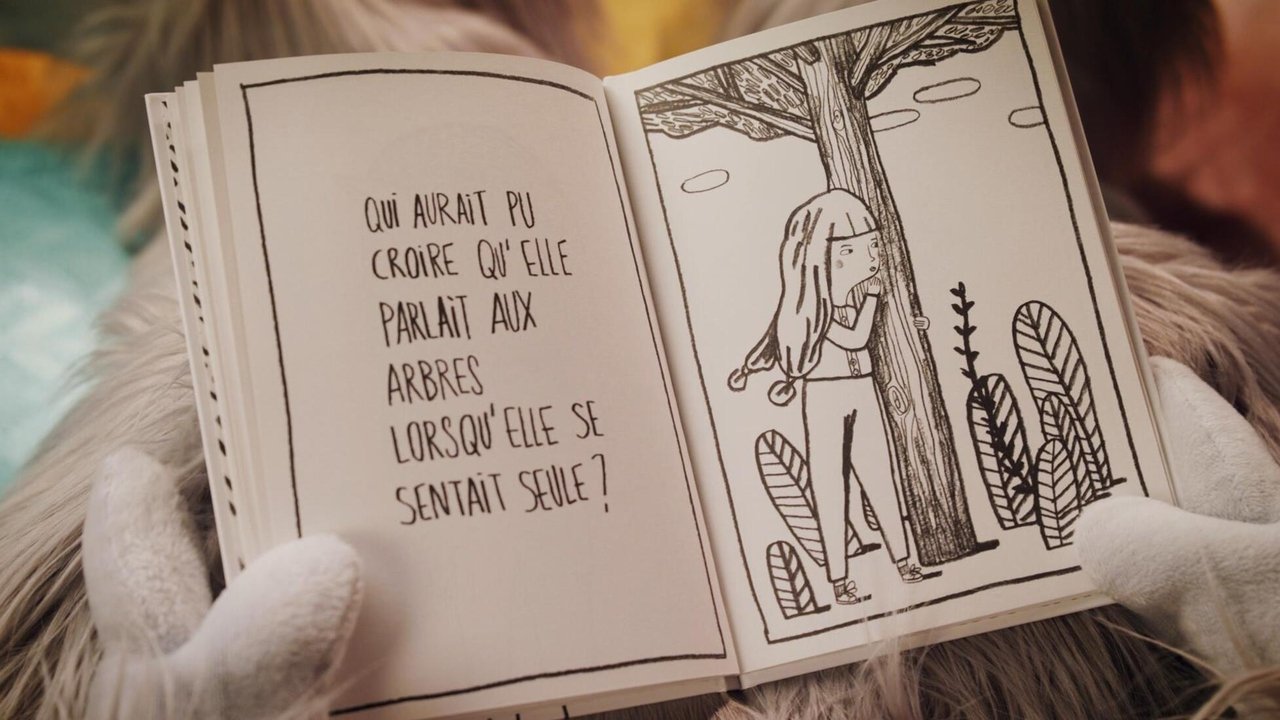 QUI AURAIT PU
CROIRE QU'ELLE
PARLAIT AUX
ARBRES
LORSQU'ELLE SE
SENTAIT SEULE ?